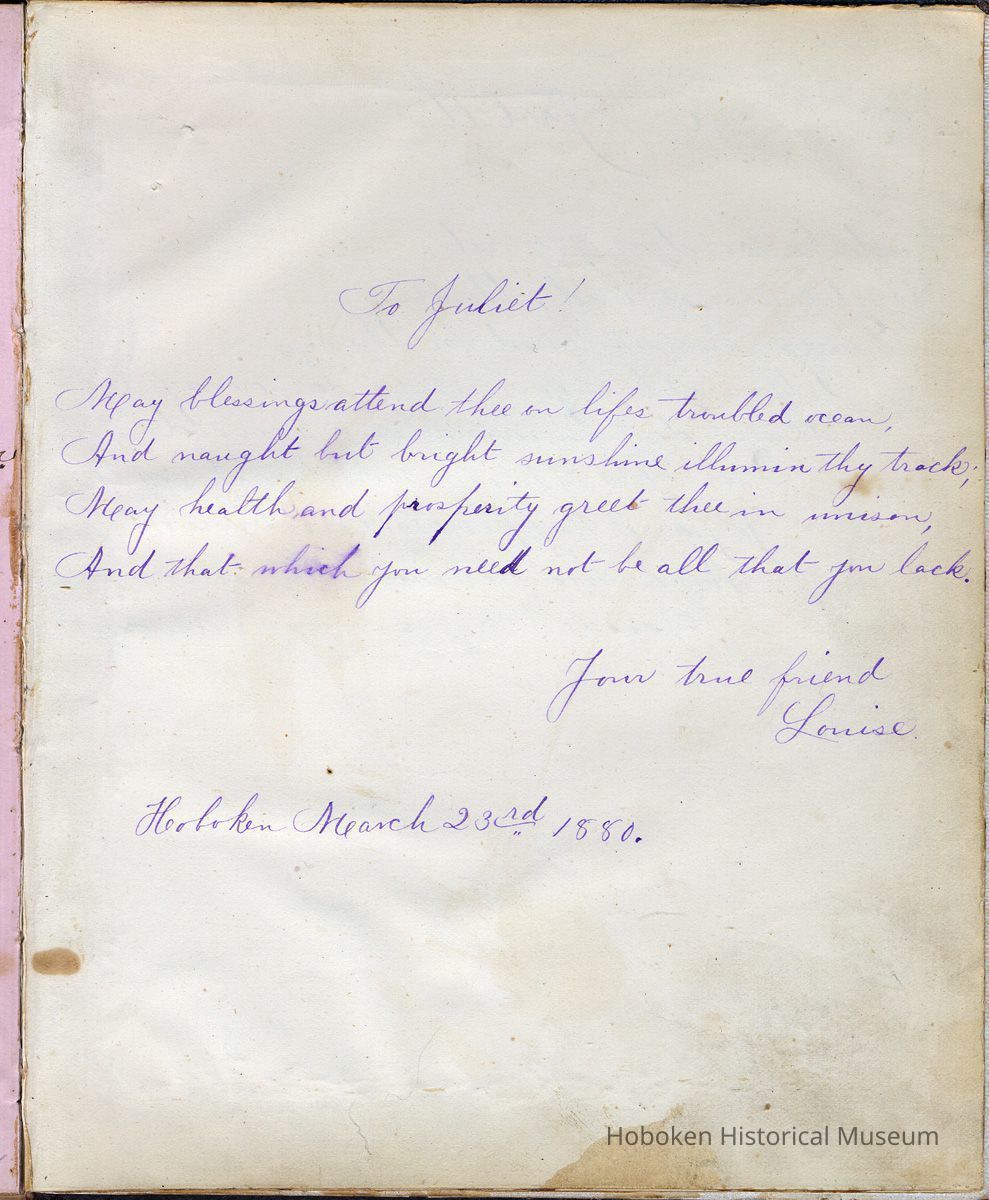 To Juliet!
May blessings attend thee on lifes troubled ocean,
And naught but bright sunshine illumin thy track;
May health and prosperity greet thee in unison,
And that which you need not be all that you lack.
Your true friend
Louise.
Hoboken March 23rd 1880.
Hoboken Historical Museum